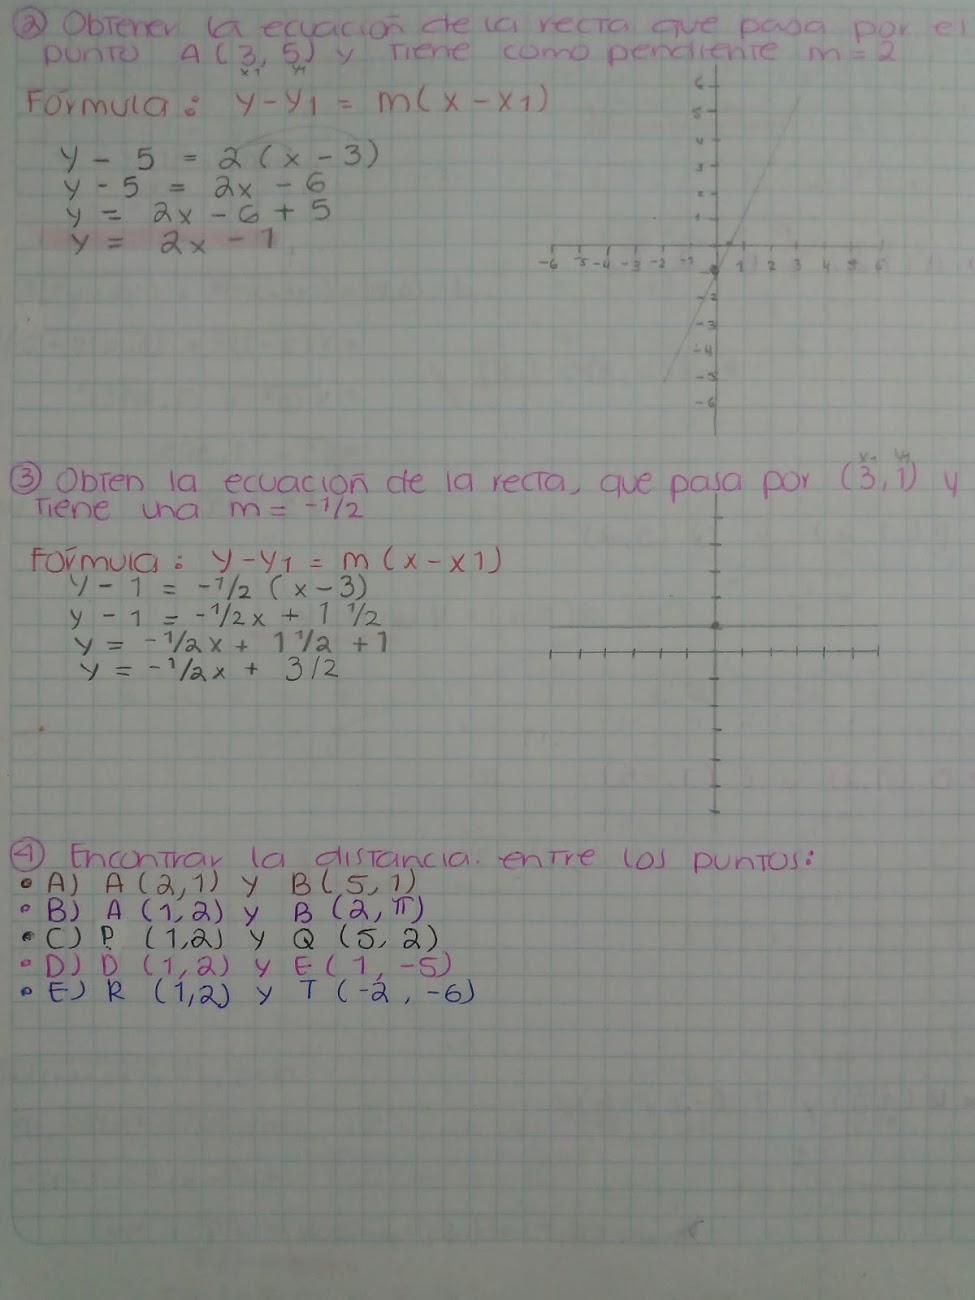 ② Obtener la ecuación de la recta que pasa por el
punto A (3, 5) y tiene como pendiente m = 2
x1 y1
Fórmula: y - y1 = m(x - x1)
y - 5 = 2 (x - 3)
y - 5 = 2x - 6
y = 2x - 6 + 5
y = 2x - 1
6
5
4
3
2
1
-6 -5 -4 -3 -2 -1 1 2 3 4 5 6
-2
-3
-4
-5
-6
x1 y1
③ Obten la ecuación de la recta, que pasa por (3, 1) y
tiene una m = -1/2
Fórmula: y - y1 = m (x - x1)
y - 1 = -1/2 (x - 3)
y - 1 = -1/2x + 1 1/2
y = -1/2x + 1 1/2 + 1
y = -1/2x + 3/2
④ Encontrar la distancia entre los puntos:
• A) A (2, 1) y B (5, 1)
• B) A (1, 2) y B (2, π)
• C) P (1,2) y Q (5, 2)
• D) D (1, 2) y E (1, -5)
• E) R (1,2) y T (-2, -6)